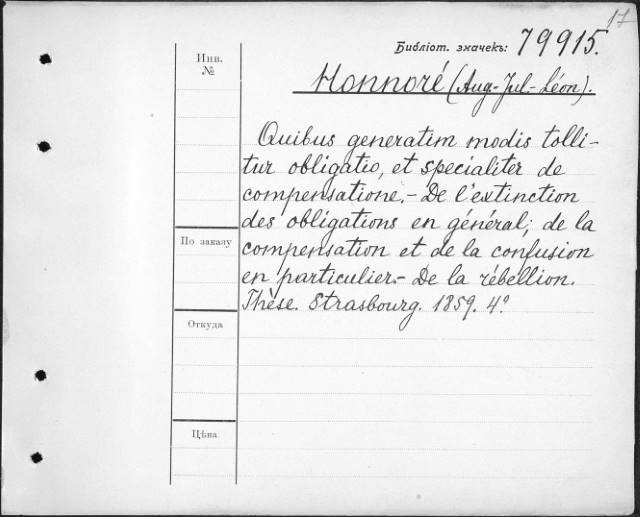 17
Библіот. значекъ: 79915.
Инв.
№
Honnoré (Aug.-Jul.-Léon).
Quibus generatim modis tolli-
tur obligatio, et specialiter de
compensatione.- De l'extinction
des obligations en général; de la
По заказу
compensation et de la confusion
en particulier.- De la rébellion.
Thèse. Strasbourg. 1859. 4º
Откуда
Цѣна